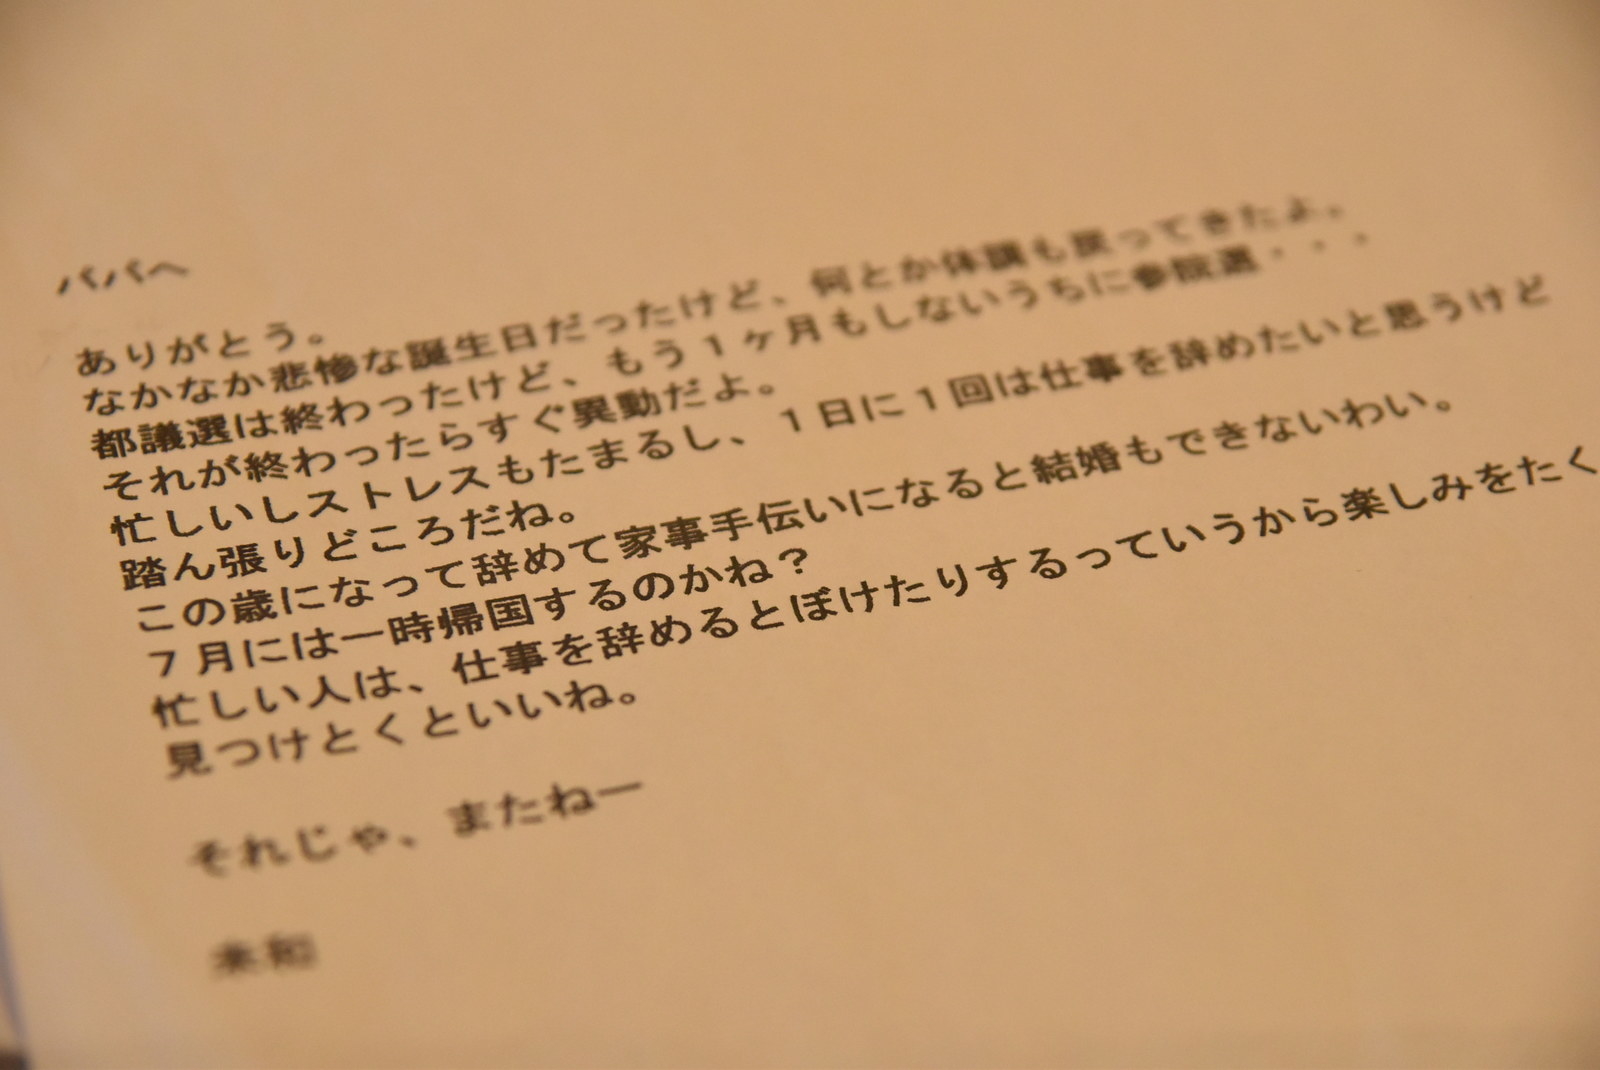 パパへ
ありがとう。
なかなか悲惨な誕生日だったけど、何とか体調も戻ってきたよ。
都議選は終わったけど、もう1ヶ月もしないうちに参院選・・・
それが終わったらすぐ異動だよ。
忙しいしストレスもたまるし、1日に1回は仕事を辞めたいと思うけど
踏ん張りどころだね。
この歳になって辞めて家事手伝いになると結婚もできないわい。
7月には一時帰国するのかね？
忙しい人は、仕事を辞めるとぼけたりするっていうから楽しみをたく
見つけとくといいね。
それじゃ、またねー
未和